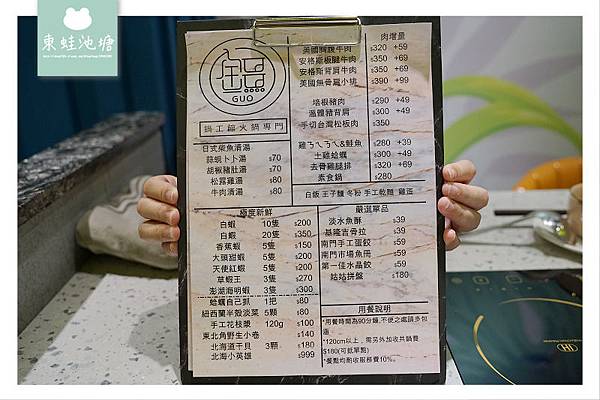 東蛙池塘
GUO
鍋工館火鍋專門
日式柴魚清湯
蒜蜆卜卜湯 $70
胡椒豬肚湯 $70
松露雞湯 $80
牛肉清湯 $80
肉增量
美國胸腹牛肉 $320 +59
安格斯板腱牛肉 $320 +59
安格斯背肩牛肉 $350 +59
美國無骨牛小排 $390 +99
培根豬肉 $290 +49
溫體豬背肩 $300 +49
手切台灣松板肉 $350
雞ㄋㄟㄋㄟ&鮭魚 $280 +39
土雞蛤蠣 $300 +49
去骨雞腿排 $320 +49
素食鍋 $280
白飯 王子麵 冬粉 手工乾麵 雞蛋
極度新鮮
白蝦 10隻 $200
白蝦 20隻 $350
香蕉蝦 5隻 $150
大頭甜蝦 5隻 $200
天使紅蝦 5隻 $200
草蝦王 3隻 $280
澎湖海明蝦 3隻 $300
蛤蠣自己抓 1把 $80
紐西蘭半殼淡菜 5顆 $80
手工花枝漿 120g $100
東北角野生小卷 $140
北海道干貝 3顆 $180
北海小英雄 $999
嚴選單品
淡水魚酥 $39
基隆吉骨拉 $39
南門手工蛋餃 $59
南門市場魚冊 $59
第一佳水晶餃 $59
姑姑拼盤 $180
用餐說明
*用餐時間為90分鐘,不便之處請多包涵
*120cm以上，需另外加收共鍋費$180(可抵單點)
*餐點均酌收服務費10%。